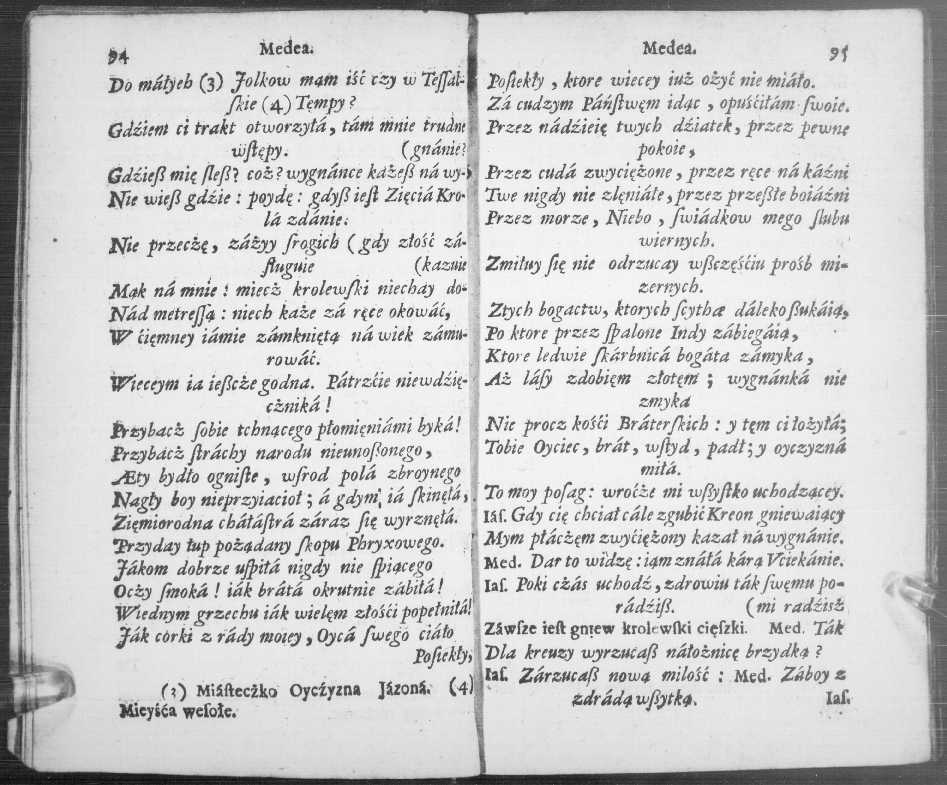 94 Medea.
Do máłych (3) Jolkow mąm iść czy w Teſſál-
ſkie (4) Tempy?
Gdźiem ci trakt otworzyłá, tám mnie trudne
wſtępy. (gnánie?
Gdźieß mię ſleß? coż? wygnánce każeß ná wy-
Nie wieß gdźie: poydę: gdyß ieſt Zięciá Kro-
lá zdánie.
Nie przeczę, zážyy ſrogich (gdy złość zá-
ſługuie (kazuie
Mąk ná mnie: miecz krolewſki niechay do-
Nád metreſſą: niech każe zá ręce okowáć,
W ćięmney iámie zámkniętą ná wiek zámu-
rowáć.
Wieceym ia ieſzcze godna. Pátrzćie niewdźię-
czniká!
Przybacz ſobie tchnącego płomięniámi byká!
Przybácz ſtráchy narodu nieunoßonego,
Æty bydło ogniſte, wſrod polá zbroynego
Nagły boy nieprzyiacioł; á gdym iá ſkinęłá,
Zięmiorodna cháłáſtrá záraz ſię wyrznęłá.
Przyday łup pożądany ſkopu Phryxowego.
Jákom dobrze uſpiłá nigdy nie ſpiącego
Oczy ſmoká! iák brátá okrutnie zábiłá!
Wiednym grzechu iák wielęm złośći popełniłá!
Ják corki z rády moiey, Oycá ſwego ciáło
Poſiekły,
(3) Miáſteczko Oyczyzna Jázoná. (4)
Mieyśća weſołe.
Medea. 95
Poſiekły, ktore wiecey iuż ożyć nie miáło.
Zá cudzym Páńſtwęm idąc, opuśćiłám ſwoie.
Przez nádźieię twych dźiatek, przez pewne
pokoie,
Przez cudá zwyciężone, przez ręce ná káźni
Twe nigdy nie zlęniáłe, przez przeßłe boiáźni
Przez morze, Niebo, ſwiádkow mego ſlubu
wiernych.
Zmiłuy ſię nie odrzucay wßczęśćiu prośb mi-
zernych.
Ztych bogactw, ktorych ſcythæ dáleko ßukáią,
Po ktore przez ſpalone Indy zábiegáią,
Ktore ledwie ſkárbnicá bogáta zámyka,
Aż láſy zdobięm złotęm; wygnánká nie
zmyka
Nic procz kośći Bráterſkich: y tęm ci łożyłá;
Tobie Oyciec, brát, wſtyd, padł; y oyczyzná
miłá.
To moy poſag: wroćże mi wßyſtko uchodzącey.
Iáſ. Gdy cię chciał cále zgubić Kreon gniewaiący
Mym płáczęm zwyćiężony kazał ná wygnánie.
Med. Dar to widzę: iąm znáłá kárą Vciekánie.
Iaſ. Poki czás uchodź, zdrowiu ták ſwęmu po-
rádźiß. (mi radźisz
Záwſze ieſt gniew krolewſki cięſzki. Med. Ták
Dla kreuzy wyrzucaß náłożnicę brzydką?
Iaſ. Zárzucaß nową miłość: Med. Záboy z
zdrádą wßytką. Iaſ.